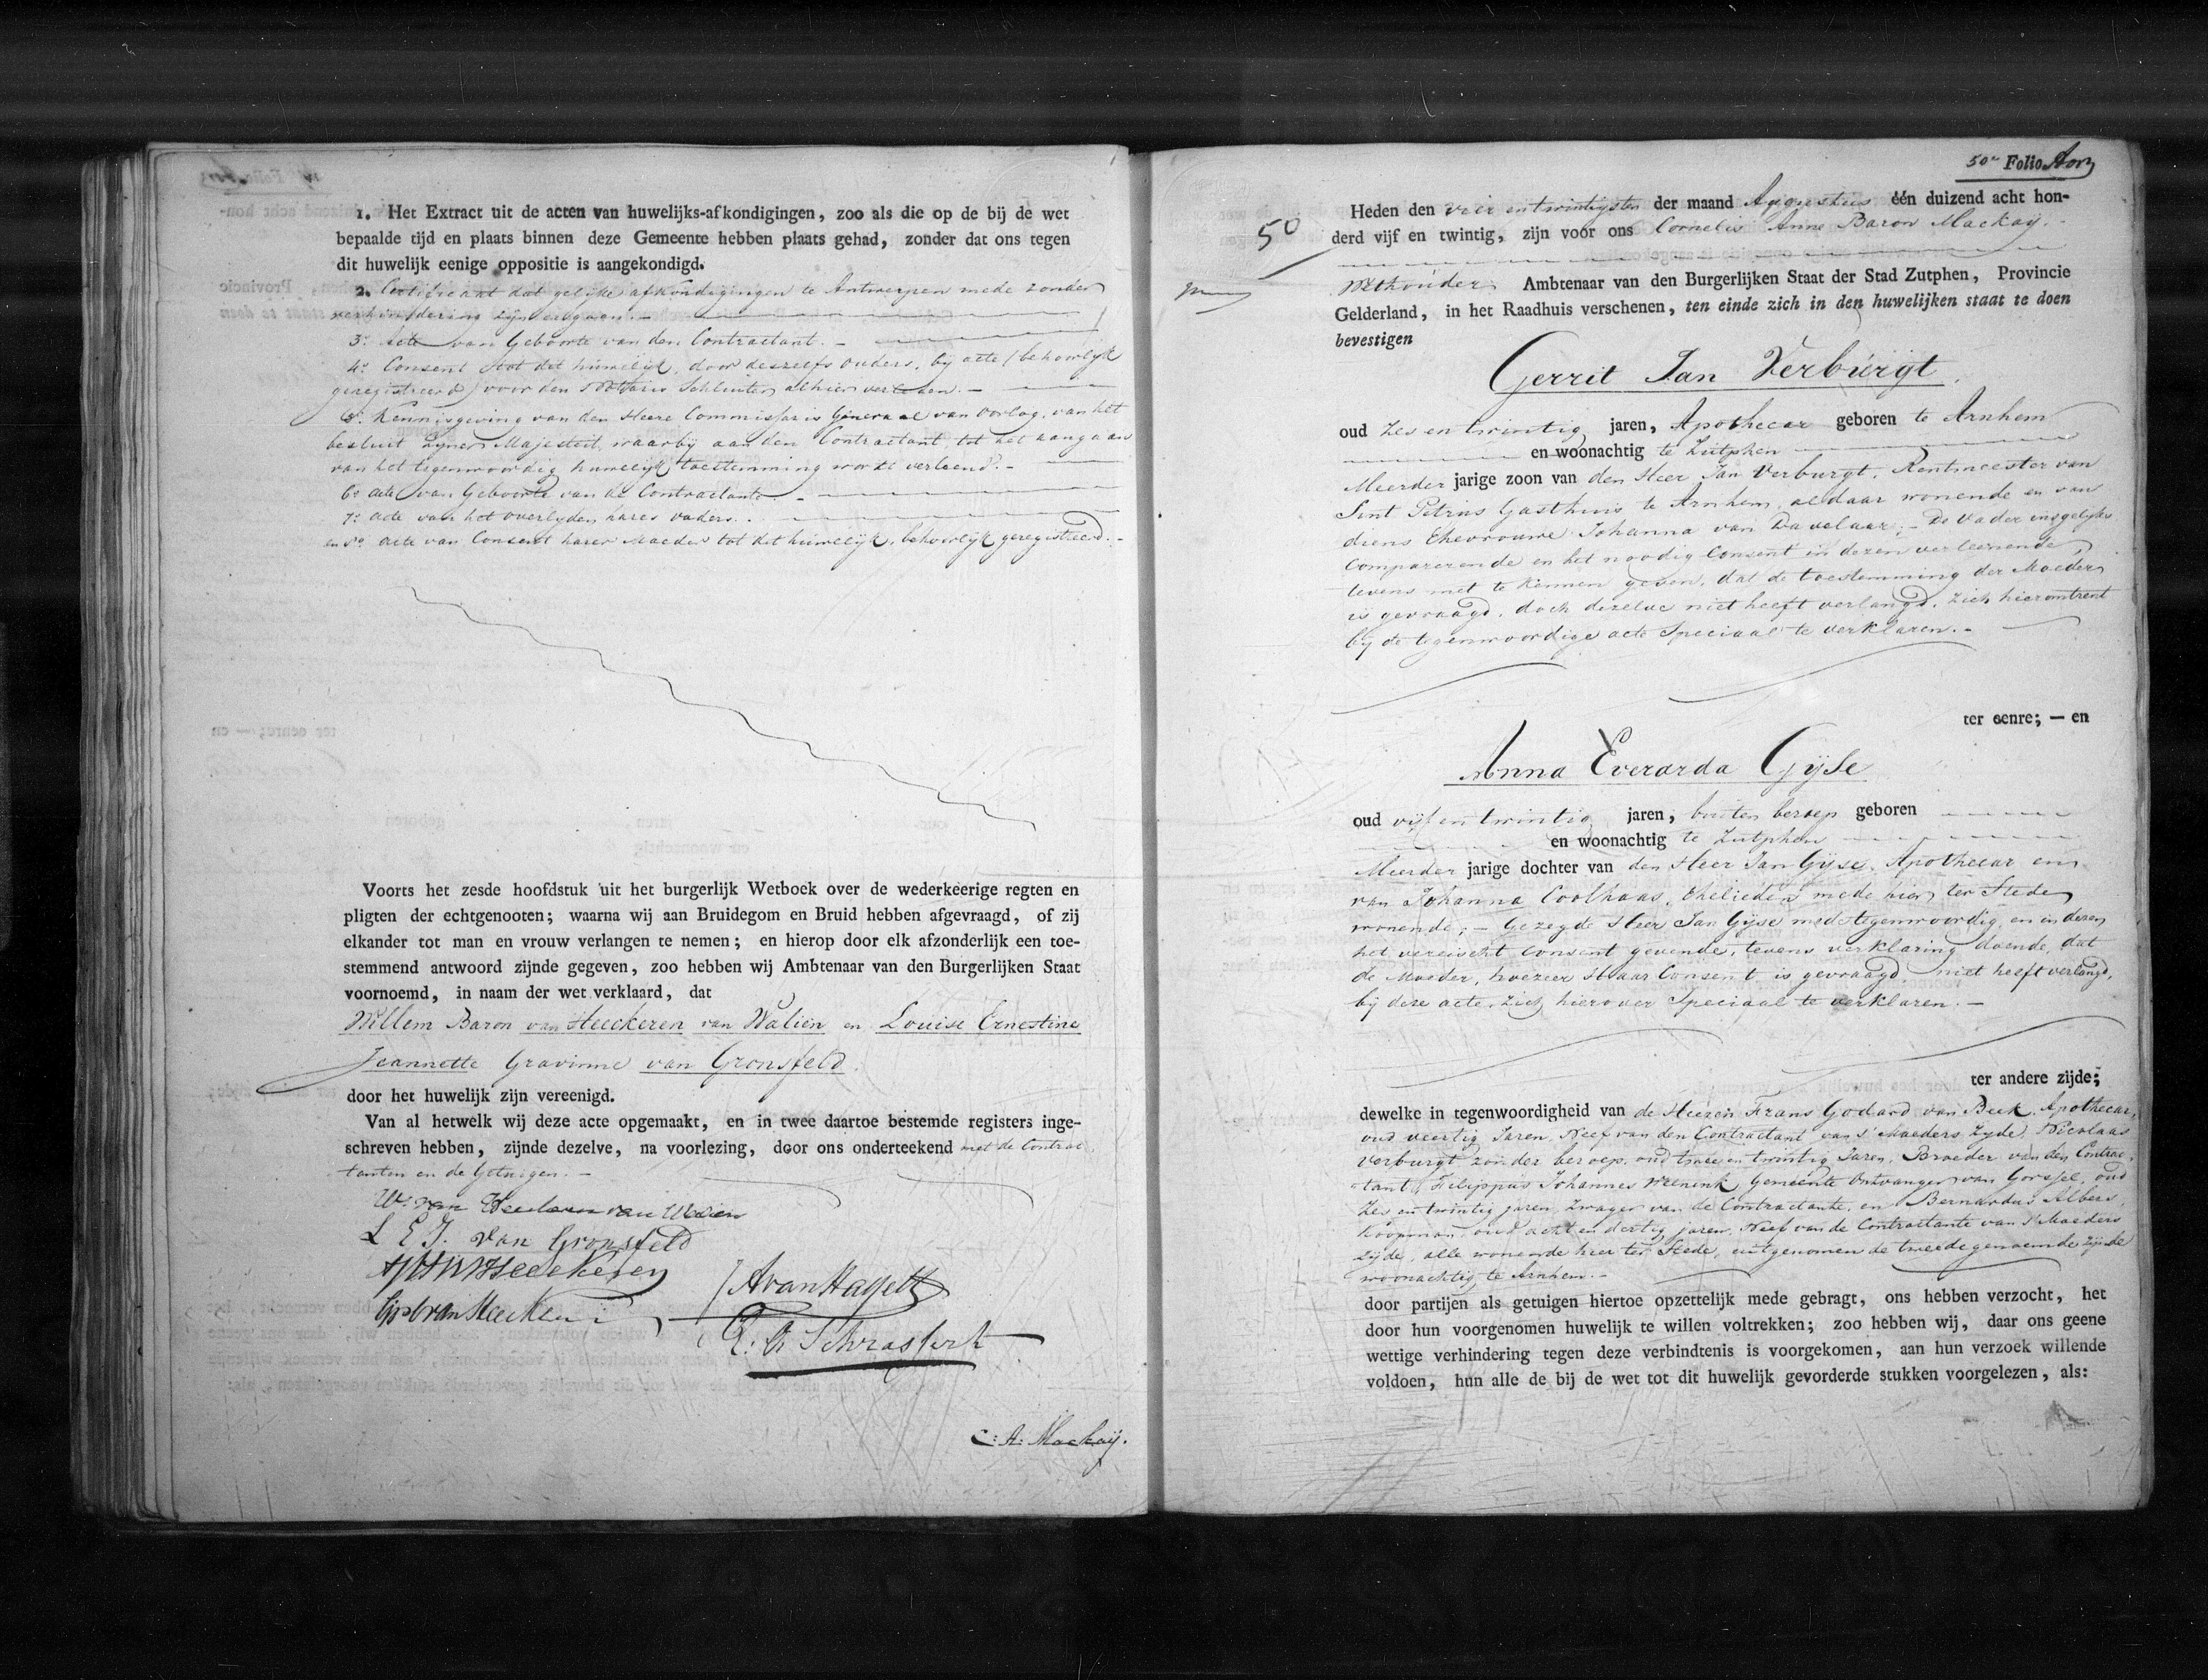 1. Het Extract uit de acten van huwelijks-afkondigingen, zoo als die op de bij de wet
bepaalde tijd en plaats binnen deze Gemeente hebben plaats gehad, zonder dat ons tegen
dit huwelijk eenige oppositie is aangekondigd.
2. Certificaat dat gelijke afkondigingen te Antwerpen mede zonder
verhindering zijn
3.° Acte van Geboorte van den Contractant. -
4.° Consent tot dit huwelijk, door deszelfs ouders, bij acte (behoorlijk
geregistreerd) voor den Notaris Schluiter alhier verleden. -
5.° Kennisgeving van den Heere Commissaris Generaal van Oorlog, van het
besluit zijner Majesteit, waarbij aan den Contractant tot het aangaan
van het tegenwoordig huwelijk toestemming wordt verleend. -
6.° acte van Geboorte van de Contractante -
7.° acte van het overlijden hares vaders. -
en 8.° acte van Consent harer Moeder tot dit huwelijk, behoorlijk geregistreerd. -
Voorts het zesde hoofdstuk uit het burgerlijk Wetboek over de wederkeerige regten en
pligten der echtgenooten; waarna wij aan Bruidegom en Bruid hebben afgevraagd, of zij
elkander tot man en vrouw verlangen te nemen; en hierop door elk afzonderlijk een toe-
stemmend antwoord zijnde gegeven, zoo hebben wij Ambtenaar van den Burgerlijken Staat
voornoemd, in naam der wet verklaard, dat
Willem Baron van Heeckeren van Waliën en Louise Ernestine
Jeannette Gravinne van Gronsfeld.
door het huwelijk zijn vereenigd.
Van al hetwelk wij deze acte opgemaakt, en in twee daartoe bestemde registers inge-
schreven hebben, zijnde dezelve, na voorlezing, door ons onderteekend met de Contrac-
tanten en de Getuigen. -
W. van Heeckeren van
L E J. van Gronsfeld
Heeckeren
van Heeckeren
A van Hasselt
C: A: Mackaij.
50e Folio
50
Heden den vier en twintigsten der maand Augustus één duizend acht hon-
derd vijf en twintig, zijn voor ons Cornelis Anne Baron Mackaij.
Wethouder, Ambtenaar van den Burgerlijken Staat der Stad Zutphen, Provincie
Gelderland, in het Raadhuis verschenen, ten einde zich in den huwelijken staat te doen
bevestigen
Gerrit Jan Verburgt
oud zes en twintig jaren, Apothecar geboren te Arnhem
en woonachtig te Zutphen
Meerder jarige zoon van den Heer Jan Verburgt, Rentmeester van
Sint Petrus Gasthuis te Arnhem, aldaar wonende en van
diens Ehevrouwe Johanna van Davelaar; - De Vader insgelijks
Comparerende en het noodig Consent in dezen verleenende,
tevens met te kennen geven, dat de toestemming der Moeder
is gevraagd, doch dezelve niet heeft verlangd, zich hieromtrent
bij de tegenwoordige acte speciaal te verklaren. -
ter eenre; — en
Anna Everarda Gijse
oud vijf en twintig jaren, buiten beroep geboren
en woonachtig te Zutphen
Meerder jarige dochter van den Heer Jan Gijse, Apothecar en
van Johanna Coolhaas, Ehelieden mede hier ter Stede
wonende; - Gezegde Heer Jan Gijse mede tegenwoordig en in dezen
het vereischt consent gevende, tevens verklaring doende, dat
de Moeder, hoezeer Haar Consent is gevraagd niet heeft verlangd,
bij deze acte zich hierover speciaal te verklaren. -
ter andere zijde;
dewelke in tegenwoordigheid van de Heeren Frans Godard van Beek, Apothecar,
oud veertig Jaren, Neef van den Contractant van s' Moeders zijde, Nicolaas
Verburgt zonder beroep, oud twee en twintig Jaren, Broeder van den Contrac-
tant, Filippus Johannes Weenink, Gemeente Ontvanger van Gorssel, oud
Zes en twintig jaren, Zwager van de Contractante, en Bernardus Albers,
Koopman, oud acht en dertig jaren, Neef van de Contractante van s' Moeders
zijde, alle wonende hier ter Stede, uitgenomen de tweede genoemde zijnde
woonachtig te Arnhem. -
door partijen als getuigen hiertoe opzettelijk mede gebragt, ons hebben verzocht, het
door hun voorgenomen huwelijk te willen voltrekken; zoo hebben wij, daar ons geene
wettige verhindering tegen deze verbindtenis is voorgekomen, aan hun verzoek willende
voldoen, hun alle de bij de wet tot dit huwelijk gevorderde stukken voorgelezen, als: